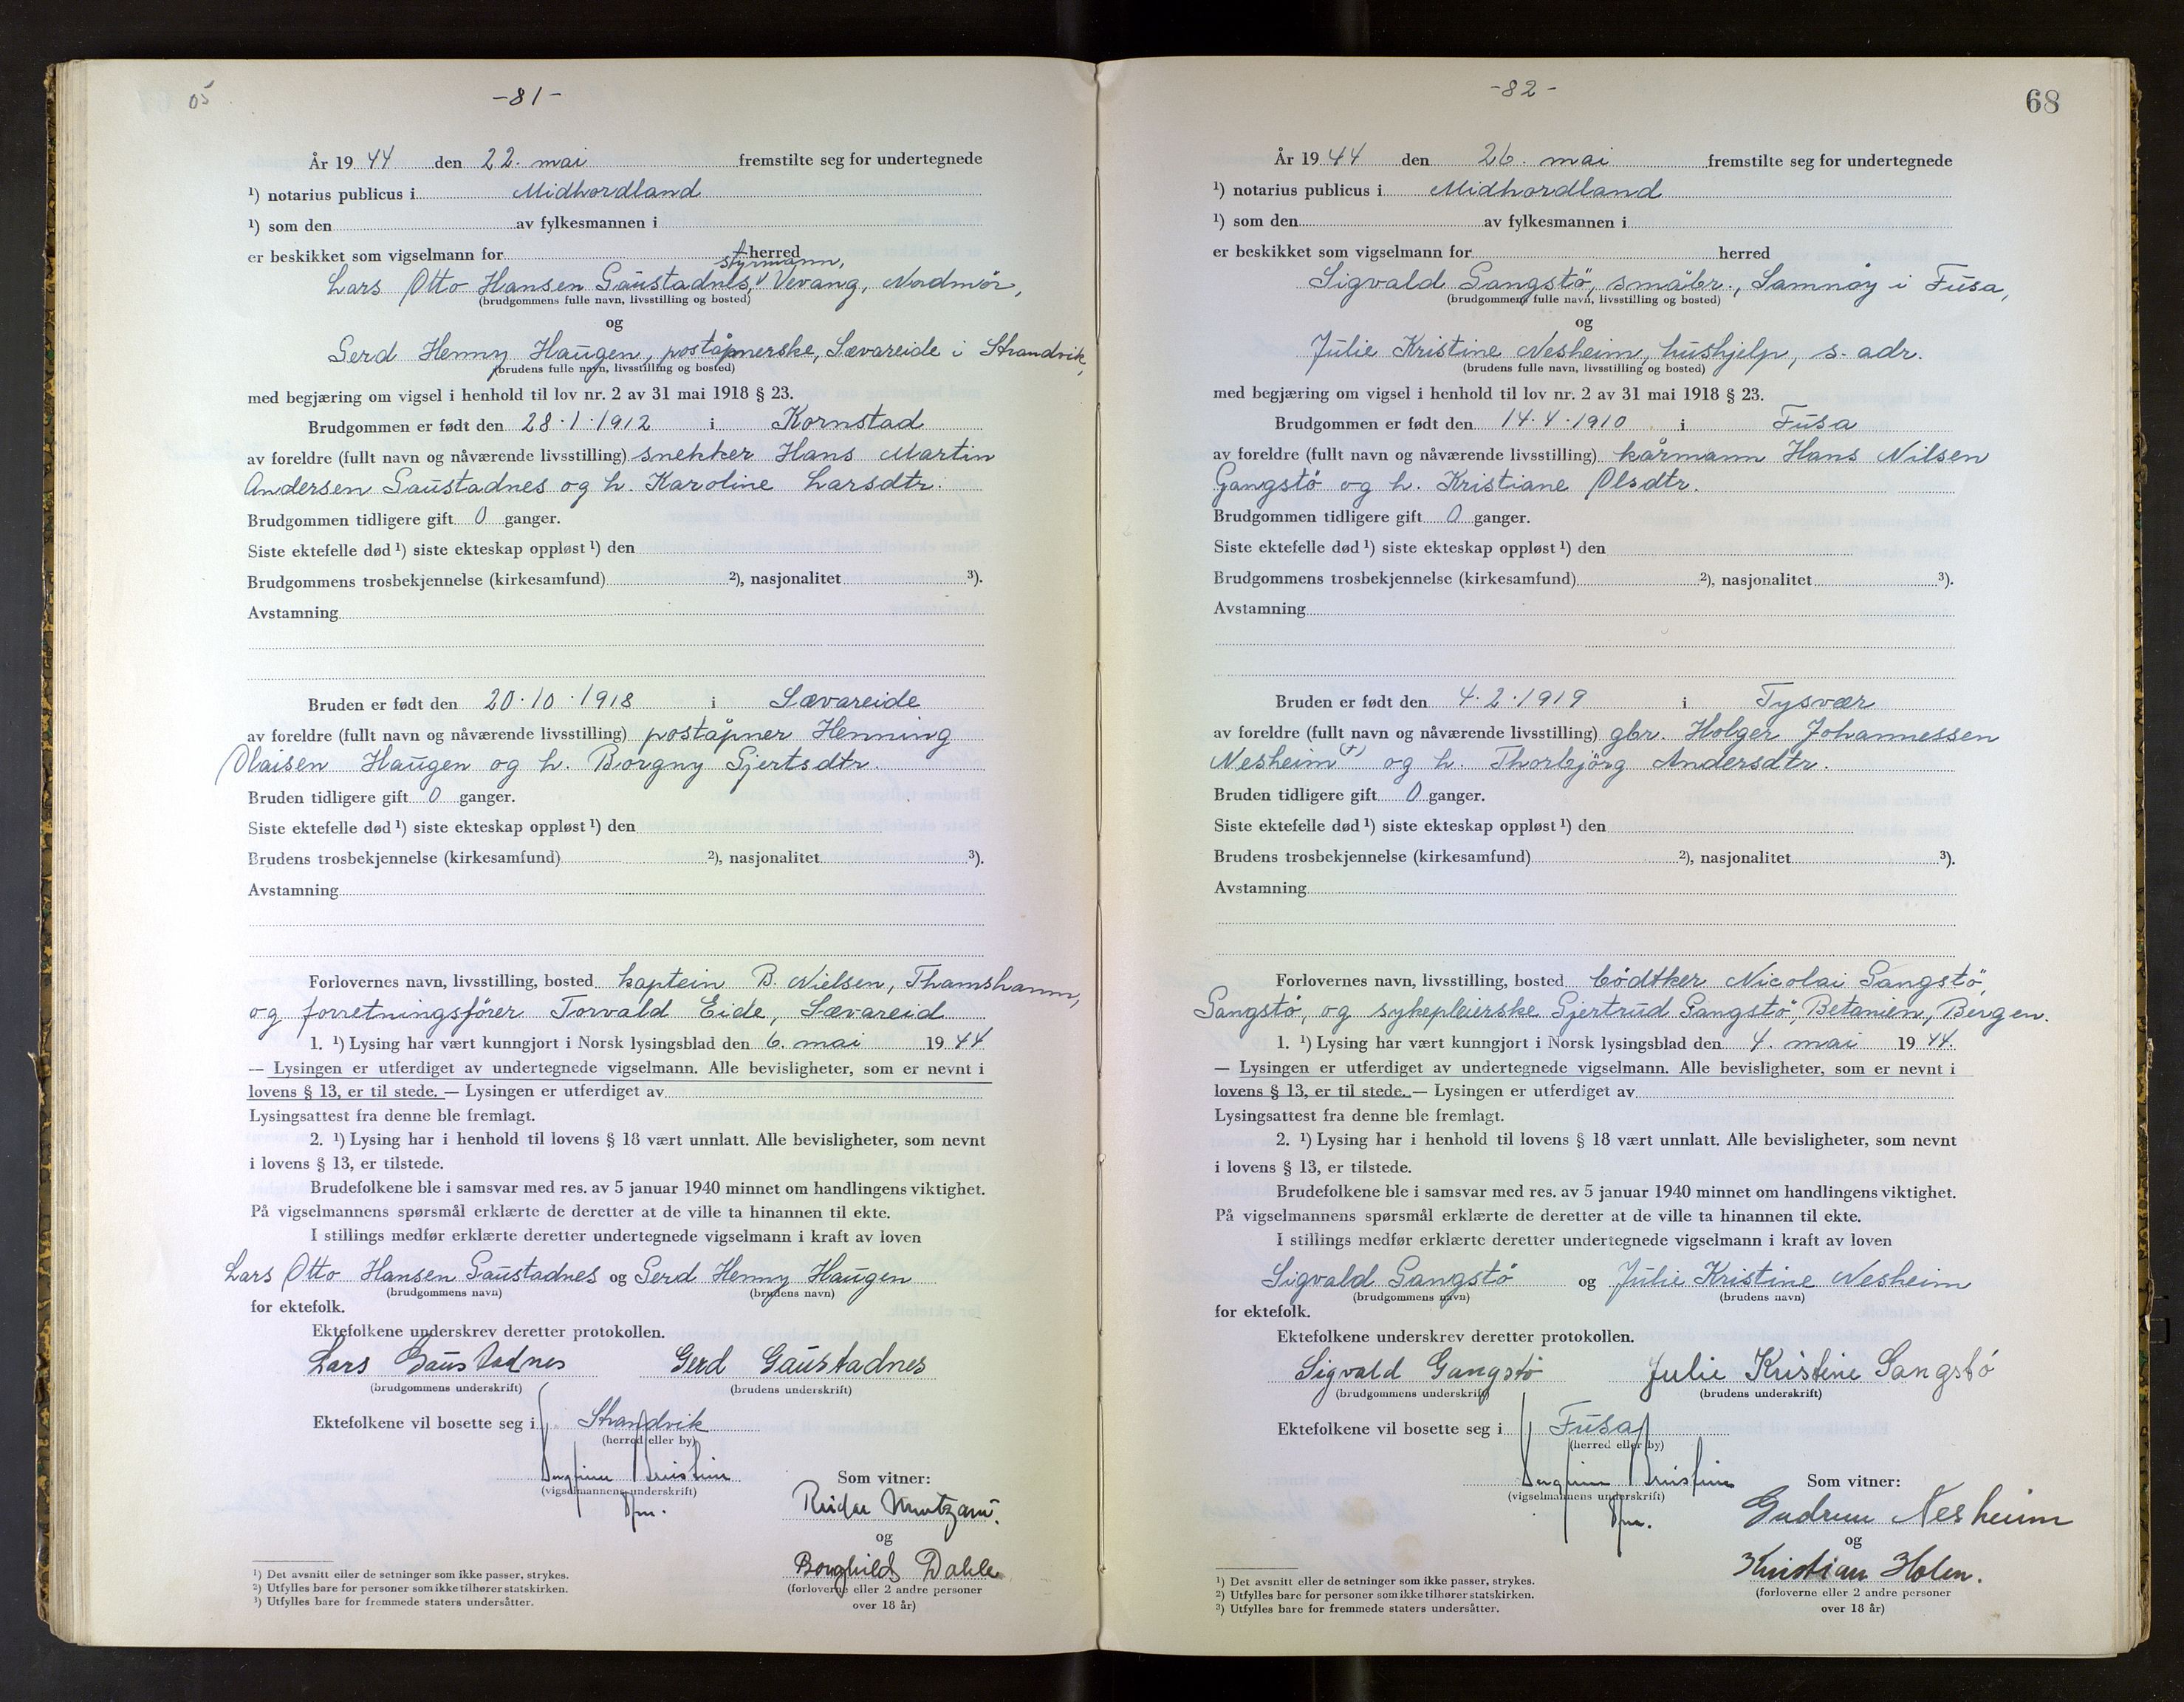 05
-81-
År 1944 den 22. mai fremstilte seg for undertegnede
¹) notarius publicus i Midhordland
¹) som den av fylkesmannen i
er beskikket som vigselmann for herred
styrmann,
Lars Otto Hansen Gaustadnes, Vevang, Nordmør,
(brudgommens fulle navn, livsstilling og bosted)
og
Gerd Henny Haugen, poståpnerske, Sævareide i Strandvik,
(brudens fulle navn, livsstilling og bosted)
med begjæring om vigsel i henhold til lov nr. 2 av 31 mai 1918 § 23.
Brudgommen er født den 28.1.1912 i Kornstad
av foreldre (fullt navn og nåværende livsstilling) snekker Hans Martin
Andersen Gaustadnes og h. Karoline Larsdtr.
Brudgommen tidligere gift 0 ganger.
Siste ektefelle død ¹) siste ekteskap oppløst ¹) den
Brudgommens trosbekjennelse (kirkesamfund) ²), nasjonalitet ³).
Avstamning
Bruden er født den 20.10.1918 i Sævareide
av foreldre (fullt navn og nåværende livsstilling) poståpner Henning
Olaisen Haugen og h. Borgny Gjertsdtr.
Bruden tidligere gift 0 ganger.
Siste ektefelle død ¹) siste ekteskap oppløst ¹) den
Brudens trosbekjennelse (kirkesamfund) ²), nasjonalitet ³).
Avstamning
Forlovernes navn, livsstilling, bosted kaptein B. Nielsen, Thamshamn,
og forretningsfører Torvald Eide, Sævareid
1. ¹) Lysing har vært kunngjort i Norsk lysingsblad den 6. mai 1944
— Lysingen er utferdiget av undertegnede vigselmann. Alle bevisligheter, som er nevnt i
lovens § 13, er til stede. — Lysingen er utferdiget av
Lysingsattest fra denne ble fremlagt.
2. ¹) Lysing har i henhold til lovens § 18 vært unnlatt. Alle bevisligheter, som nevnt
i lovens § 13, er tilstede.
Brudefolkene ble i samsvar med res. av 5 januar 1940 minnet om handlingens viktighet.
På vigselmannens spørsmål erklærte de deretter at de ville ta hinannen til ekte.
I stillings medfør erklærte deretter undertegnede vigselmann i kraft av loven
Lars Otto Hansen Gaustadnes og Gerd Henny Haugen
(brudgommens navn) (brudens navn)
for ektefolk.
Ektefolkene underskrev deretter protokollen.
Lars Gaustadnes Gerd Gaustadnes
(brudgommens underskrift) (brudens underskrift)
Ektefolkene vil bosette seg i Strandvik
(herred eller by)
Som vitner:
(vigselmannens underskrift)
Reidar
og
Borghild Dahle
(forloverne eller 2 andre personer
over 18 år)
¹) Det avsnitt eller de setninger som ikke passer, strykes.
²) Utfylles bare for personer som ikke tilhører statskirken.
³) Utfylles bare for fremmede staters undersåtter.
-82-
68
År 1944 den 26. mai fremstilte seg for undertegnede
¹) notarius publicus i Midhordland
¹) som den av fylkesmannen i
er beskikket som vigselmann for herred
Sigvald Gangstö, småbr., Samnøy i Fusa,
(brudgommens fulle navn, livsstilling og bosted)
og
Julie Kristine Nesheim, hushjelp, s. adr.
(brudens fulle navn, livsstilling og bosted)
med begjæring om vigsel i henhold til lov nr. 2 av 31 mai 1918 § 23.
Brudgommen er født den 14.4.1910 i Fusa
av foreldre (fullt navn og nåværende livsstilling) kårmann Hans Nilsen
Gangstö og h. Kristiane Olsdtr.
Brudgommen tidligere gift 0 ganger.
Siste ektefelle død ¹) siste ekteskap oppløst ¹) den
Brudgommens trosbekjennelse (kirkesamfund) ²), nasjonalitet ³).
Avstamning
Bruden er født den 4.2.1919 i Tysvær
av foreldre (fullt navn og nåværende livsstilling) gbr. Holger Johannessen
Nesheim (+) og h. Thorbjörg Andersdtr.
Bruden tidligere gift 0 ganger.
Siste ektefelle død ¹) siste ekteskap oppløst ¹) den
Brudens trosbekjennelse (kirkesamfund) ²), nasjonalitet ³).
Avstamning
Forlovernes navn, livsstilling, bosted bödtker Nicolai Gangstö,
Gangstö, og sykepleierske Gjertrud Gangstö, Betanien, Bergen.
1. ¹) Lysing har vært kunngjort i Norsk lysingsblad den 4. mai 1944.
— Lysingen er utferdiget av undertegnede vigselmann. Alle bevisligheter, som er nevnt i
lovens § 13, er til stede. — Lysingen er utferdiget av
Lysingsattest fra denne ble fremlagt.
2. ¹) Lysing har i henhold til lovens § 18 vært unnlatt. Alle bevisligheter, som nevnt
i lovens § 13, er tilstede.
Brudefolkene ble i samsvar med res. av 5 januar 1940 minnet om handlingens viktighet.
På vigselmannens spørsmål erklærte de deretter at de ville ta hinannen til ekte.
I stillings medfør erklærte deretter undertegnede vigselmann i kraft av loven
Sigvald Gangstö og Julie Kristine Nesheim
(brudgommens navn) (brudens navn)
for ektefolk.
Ektefolkene underskrev deretter protokollen.
Sigvald Gangstö Julie Kristine Gangstö
(brudgommens underskrift) (brudens underskrift)
Ektefolkene vil bosette seg i Fusa
(herred eller by)
Som vitner:
(vigselmannens underskrift)
Gudrun Nesheim
og
Kristian Holen.
(forloverne eller 2 andre personer
over 18 år)
¹) Det avsnitt eller de setninger som ikke passer, strykes.
²) Utfylles bare for personer som ikke tilhører statskirken.
³) Utfylles bare for fremmede staters undersåtter.